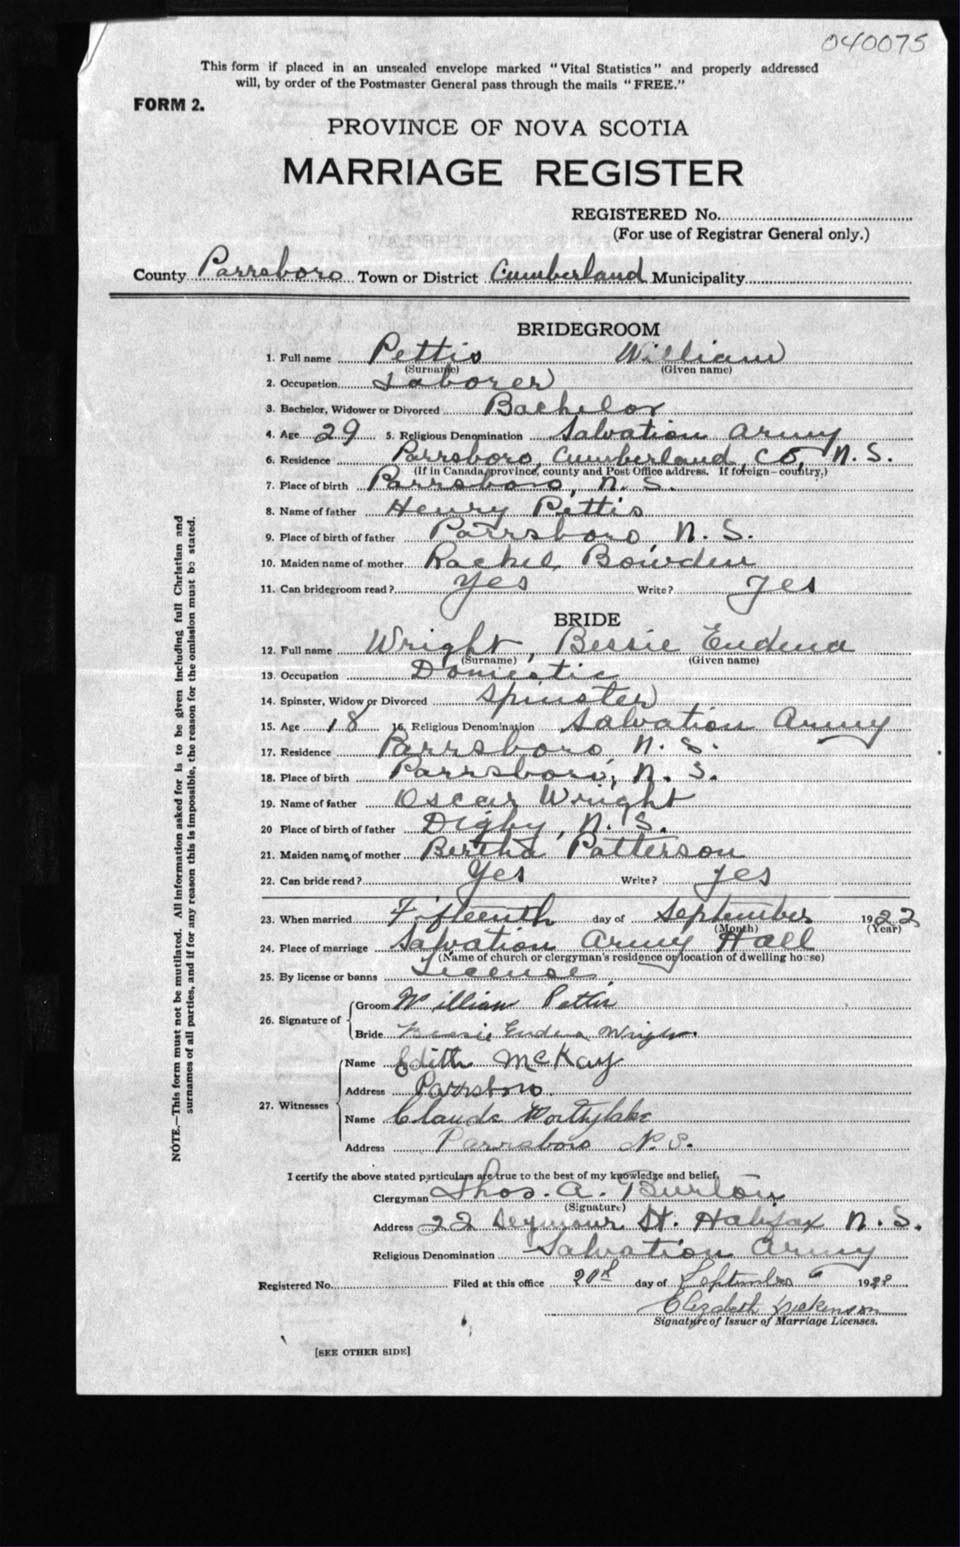 040075
This form if placed in an unsealed envelope marked "Vital Statistics" and properly addressed
will, by order of the Postmaster General pass through the mails "FREE."
FORM 2.
PROVINCE OF NOVA SCOTIA
MARRIAGE REGISTER
REGISTERED No.
(For use of Registrar General only.)
County Parrsboro Town or District Cumberland Municipality
BRIDEGROOM
1. Full name Pettis William
(Surname) (Given name)
2. Occupation Laborer
3. Bachelor, Widower or Divorced Bachelor
4. Age 29 5. Religious Denomination Salvation Army
6. Residence Parrsboro, Cumberland Co, N. S.
(If in Canada, province, county and Post Office address. If foreign—country,)
7. Place of birth Parrsboro, N. S.
8. Name of father Henry Pettis
9. Place of birth of father Parrsboro, N. S.
10. Maiden name of mother Rachel Bowden
11. Can bridegroom read? Yes Write? Yes
BRIDE
12. Full name Wright, Bessie Eudena
(Surname) (Given name)
13. Occupation Domestic
14. Spinster, Widow or Divorced Spinster
15. Age 18 16. Religious Denomination Salvation Army
17. Residence Parrsboro, N. S.
18. Place of birth Parrsboro, N. S.
19. Name of father Oscar Wright
20 Place of birth of father Digby, N. S.
21. Maiden name of mother Bertha Patterson
22. Can bride read? Yes Write? Yes
23. When married Fifteenth day of September 1922
(Month) (Year)
24. Place of marriage Salvation Army Hall
(Name of church or clergyman's residence or location of dwelling house)
25. By license or banns License
26. Signature of
Groom William Pettis
Bride Bessie Eudena Wright
27. Witnesses
Name Edith McKay
Address Parrsboro
Name Claude Worthylake
Address Parrsboro N.S.
I certify the above stated particulars are true to the best of my knowledge and belief,
Clergyman Thos. A. Burton
(Signature)
Address 22 Seymour St. Halifax N. S.
Religious Denomination Salvation Army
Registered No. Filed at this office day of September 192
Elizabeth Dickenson
Signature of Issuer of Marriage Licenses.
[SEE OTHER SIDE]
NOTE.—This form must not be mutilated. All information asked for is to be given including full Christian and
surnames of all parties, and if for any reason this is impossible, the reason for the omission must be stated.